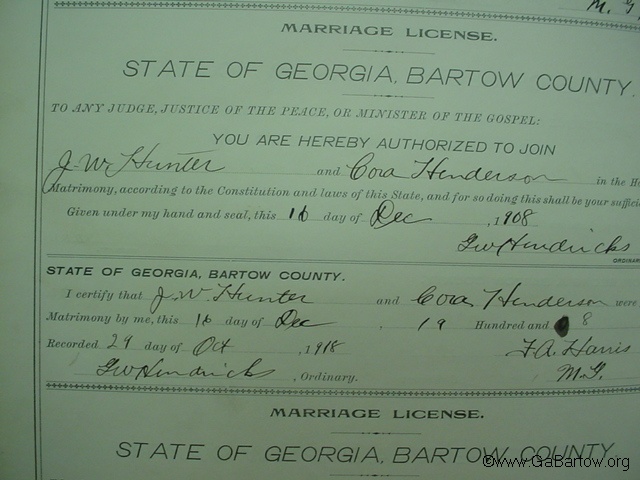 M. G.
MARRIAGE LICENSE.
STATE OF GEORGIA, BARTOW COUNTY.
TO ANY JUDGE, JUSTICE OF THE PEACE, OR MINISTER OF THE GOSPEL:
YOU ARE HEREBY AUTHORIZED TO JOIN
J. W. Hunter and Cora Henderson in the Ho
Matrimony, according to the Constitution and laws of this State, and for so doing this shall be your suffici
Given under my hand and seal, this 16 day of Dec , 1908
GW Hendricks
ORDINAR
STATE OF GEORGIA, BARTOW COUNTY.
I certify that J. W. Hunter and Cora Henderson were
Matrimony by me, this 16 day of Dec , 19 Hundred and 8
Recorded 29 day of Oct , 1918 F. A. Harris
GW Hendricks , Ordinary. M. G.
MARRIAGE LICENSE.
STATE OF GEORGIA, BARTOW COUNTY.
©www.GaBartow.org